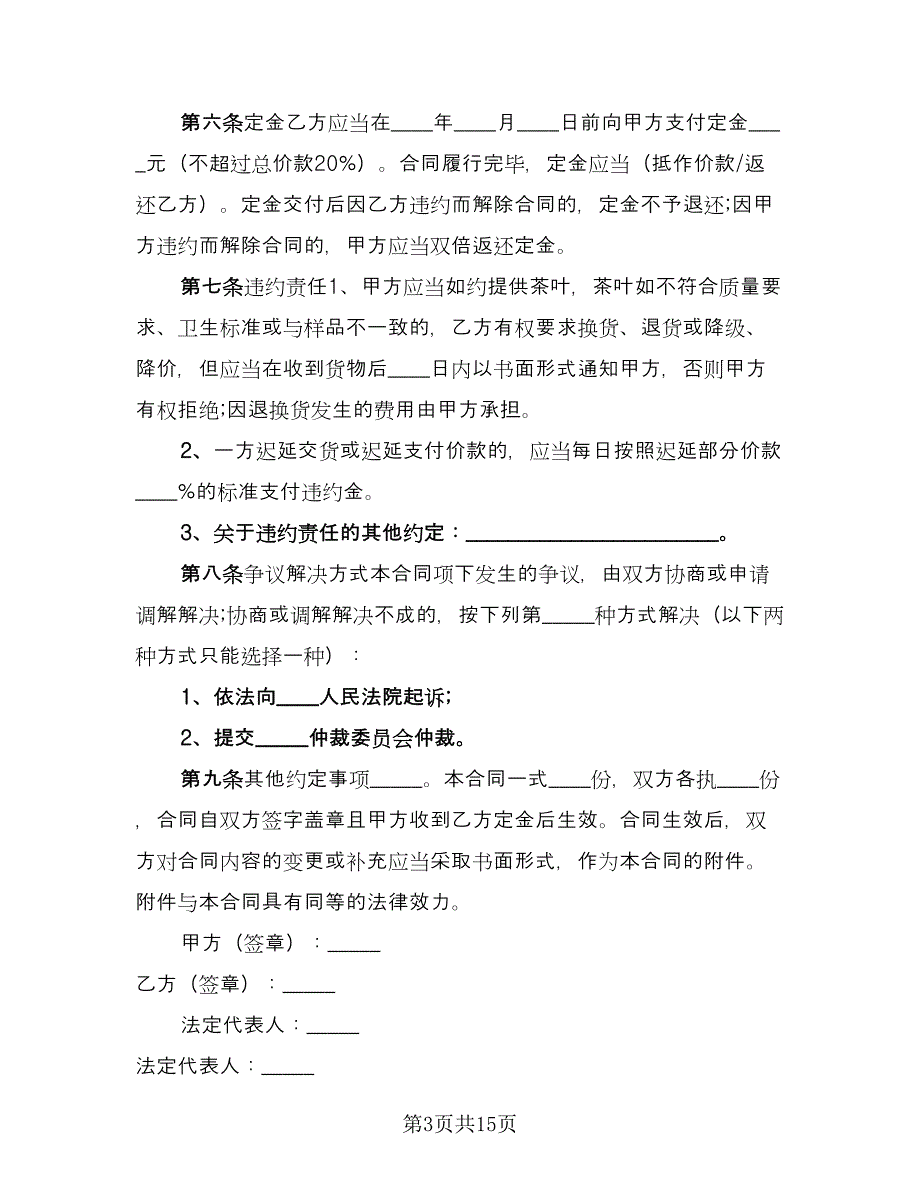 第六条定金乙方应当在____年____月____日前向甲方支付定金___
_元（不超过总价款20%）。合同履行完毕，定金应当（抵作价款/返
还乙方）。定金交付后因乙方违约而解除合同的，定金不予退还;因甲
方违约而解除合同的，甲方应当双倍返还定金。
第七条违约责任1、甲方应当如约提供茶叶，茶叶如不符合质量要
求、卫生标准或与样品不一致的，乙方有权要求换货、退货或降级、
降价，但应当在收到货物后____日内以书面形式通知甲方，否则甲方
有权拒绝;因退换货发生的费用由甲方承担。
2、一方迟延交货或迟延支付价款的，应当每日按照迟延部分价款
____%的标准支付违约金。
3、关于违约责任的其他约定：________________________。
第八条争议解决方式本合同项下发生的争议，由双方协商或申请
调解解决;协商或调解解决不成的，按下列第_____种方式解决（以下两
种方式只能选择一种）：
1、依法向____人民法院起诉;
2、提交_____仲裁委员会仲裁。
第九条其他约定事项_____。本合同一式____份，双方各执____份
，合同自双方签字盖章且甲方收到乙方定金后生效。合同生效后，双
方对合同内容的变更或补充应当采取书面形式，作为本合同的附件。
附件与本合同具有同等的法律效力。
甲方（签章）：_____
乙方（签章）：_____
法定代表人：_____
法定代表人：_____
第3页共15页